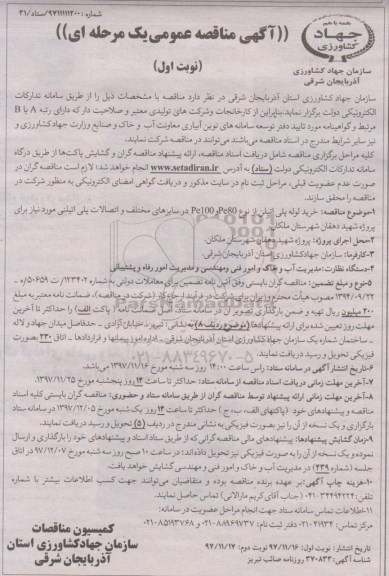 شماره : ۹۷۱۱۱۱۱۲۰۰/ستاد/۳۱
((آگهی مناقصه عمومی یک مرحله ای))
(نوبت اول)
جهاد
کشاورزی
سازمان جهاد کشاورزی
آذربایجان شرقی
سازمان جهاد کشاورزی استان آذربایجان شرقی در نظر دارد مناقصه با مشخصات ذیل را از طریق سامانه تدارکات
الکترونیکی دولت برگزار نماید.بنابراین از کارخانجات وشرکت های تولیدی معتبر و صلاحیت دار که دارای رتبه A یا B
مرتبط و گواهینامه مورد تایید دفتر توسعه سامانه های نوین آبیاری معاونت آب و خاک و صنایع وزارت جهاد کشاورزی و
نیز سایر شرایط مندرج در اسناد مناقصه می‌باشند می‌توانند در مناقصه شرکت نمایند.
کلیه مراحل برگزاری مناقصه شامل دریافت اسناد مناقصه، ارائه پیشنهاد مناقصه گران و گشایش پاکت‌ها از طریق درگاه
سامانه تدارکات الکترونیکی دولت (ستاد) به آدرس www.setadiran.ir انجام خواهد شد؛ لازم است مناقصه گران در
صورت عدم عضویت قبلی، مراحل ثبت نام در سایت مذکور و دریافت گواهی امضای الکترونیکی به منظور شرکت در
مناقصه را محقق سازند.
۱-موضوع مناقصه: خرید لوله پلی اتیلن از نوع Pe100 ,Pe80 در سایزهای مختلف و اتصالات پلی اتیلنی مورد نیاز برای
پروژه شهید دهقان شهرستان ملکان.
۲-محل اجرای پروژه: پروژه شهید دهقان شهرستان ملکان.
۳-کارفرما: سازمان جهادکشاورزی استان آذربایجان شرقی.
۴-دستگاه نظارت: مدیریت آب و خاک و امور فنی ومهندسی و مدیریت امور رفاه و پشتیبانی
۵-نوع و مبلغ تضمین: مناقصه گران بایستی وفق آئین نامه تضمین برای معاملات دولتی به شماره ۱۲۳۴۰۲/ت ۵۰۶۵۹ه-
۱۳۹۴/۰۹/۲۲ مصوب هیأت محترم وزیران
۲۰۰ میلیون ریال تهیه و ضمن بارگذاری تصویر آن در سامانه ستاد
مهلت روز تعیین شده برای ارائه پیشنهادها (موضوع ردیف ۸) به نشانی: تبریز - خیابان آزادی - حدفاصل میدان جهاد و لاله
- ساختمان شماره یک سازمان جهاد کشاورزی استان آذربایجان شرقی - اداره امور پیمانها و قراردادها - اتاق ۲۳۰ بصورت
فیزیکی تحویل و رسید دریافت نمایند.
۶-تاریخ انتشار آگهی در سامانه ستاد: راس ساعت ۱۴:۰۰ روز سه شنبه مورخ ۱۳۹۷/۱۱/۱۶ می‌باشد.
۷-آخرین مهلت زمانی دریافت اسناد مناقصه از سامانه ستاد: حداکثر تا ساعت ۱۴ روز پنجشنبه مورخ ۱۳۹۷/۱۱/۲۵.
۸-آخرین مهلت زمانی ارائه پیشنهاد توسط مناقصه گران از طریق سامانه ستاد و حضوری: مناقصه گران بایستی کلیه اسناد
مناقصه و پیشنهادهای خود (پاکتهای الف، ب، ج) حداکثر تا ساعت ۱۴ روز یک شنبه مورخ ۱۳۹۷/۱۲/۰۵ در سامانه ستاد
بارگزاری و یک نسخه از آن را نیز بصورت فیزیکی به نشانی مندرج در ردیف (۵) تحویل و رسید دریافت نمایند.
۹-زمان گشایش پیشنهادها: پیشنهادهای مالی مناقصه گرانی که از طریق ستاد اسناد و پیشنهادهای خود را بارگذاری و ارسال
نموده و یک نسخه از آن را به صورت فیزیکی نیز تحویل داده‌اند؛ در ساعت ۱۰ صبح روز سه شنبه مورخ ۹۷/۱۲/۰۷ در اتاق
جلسه (شماره ۲۳۹) در مدیریت آب و خاک و امور فنی و مهندسی گشایش خواهد یافت.
۱۰-هزینه چاپ آگهی:بر عهده برنده مناقصه بوده و متقاضیان می‌توانند جهت کسب اطلاعات بیشتر با شماره
تلفن: ۰۴۱-۳۴۴۹۴۲۲۴ (جناب آقای کریم مارالانی) تماس حاصل نمایند.
۱۱-اطلاعات تماس سامانه ستاد جهت انجام مراحل عضویت در سامانه:
مرکز تماس: ۴۱۹۳۴-۰۲۱ دفتر ثبت نام: ۸۸۹۶۹۷۳۷-۰۲۱ و ۸۵۱۹۳۷۶۸-۰۲۱
تاریخ انتشار: نوبت اول: ۹۷/۱۱/۱۶ نوبت دوم: ۹۷/۱۱/۱۷
شناسه آگهی: ۳۷۰۸۳۳ روزنامه صائب تبریز
کمیسیون مناقصات
سازمان جهادکشاورزی استان
آذربایجان شرقی
۰۲۱-۸۸۳۴۹۶۷۰-۵